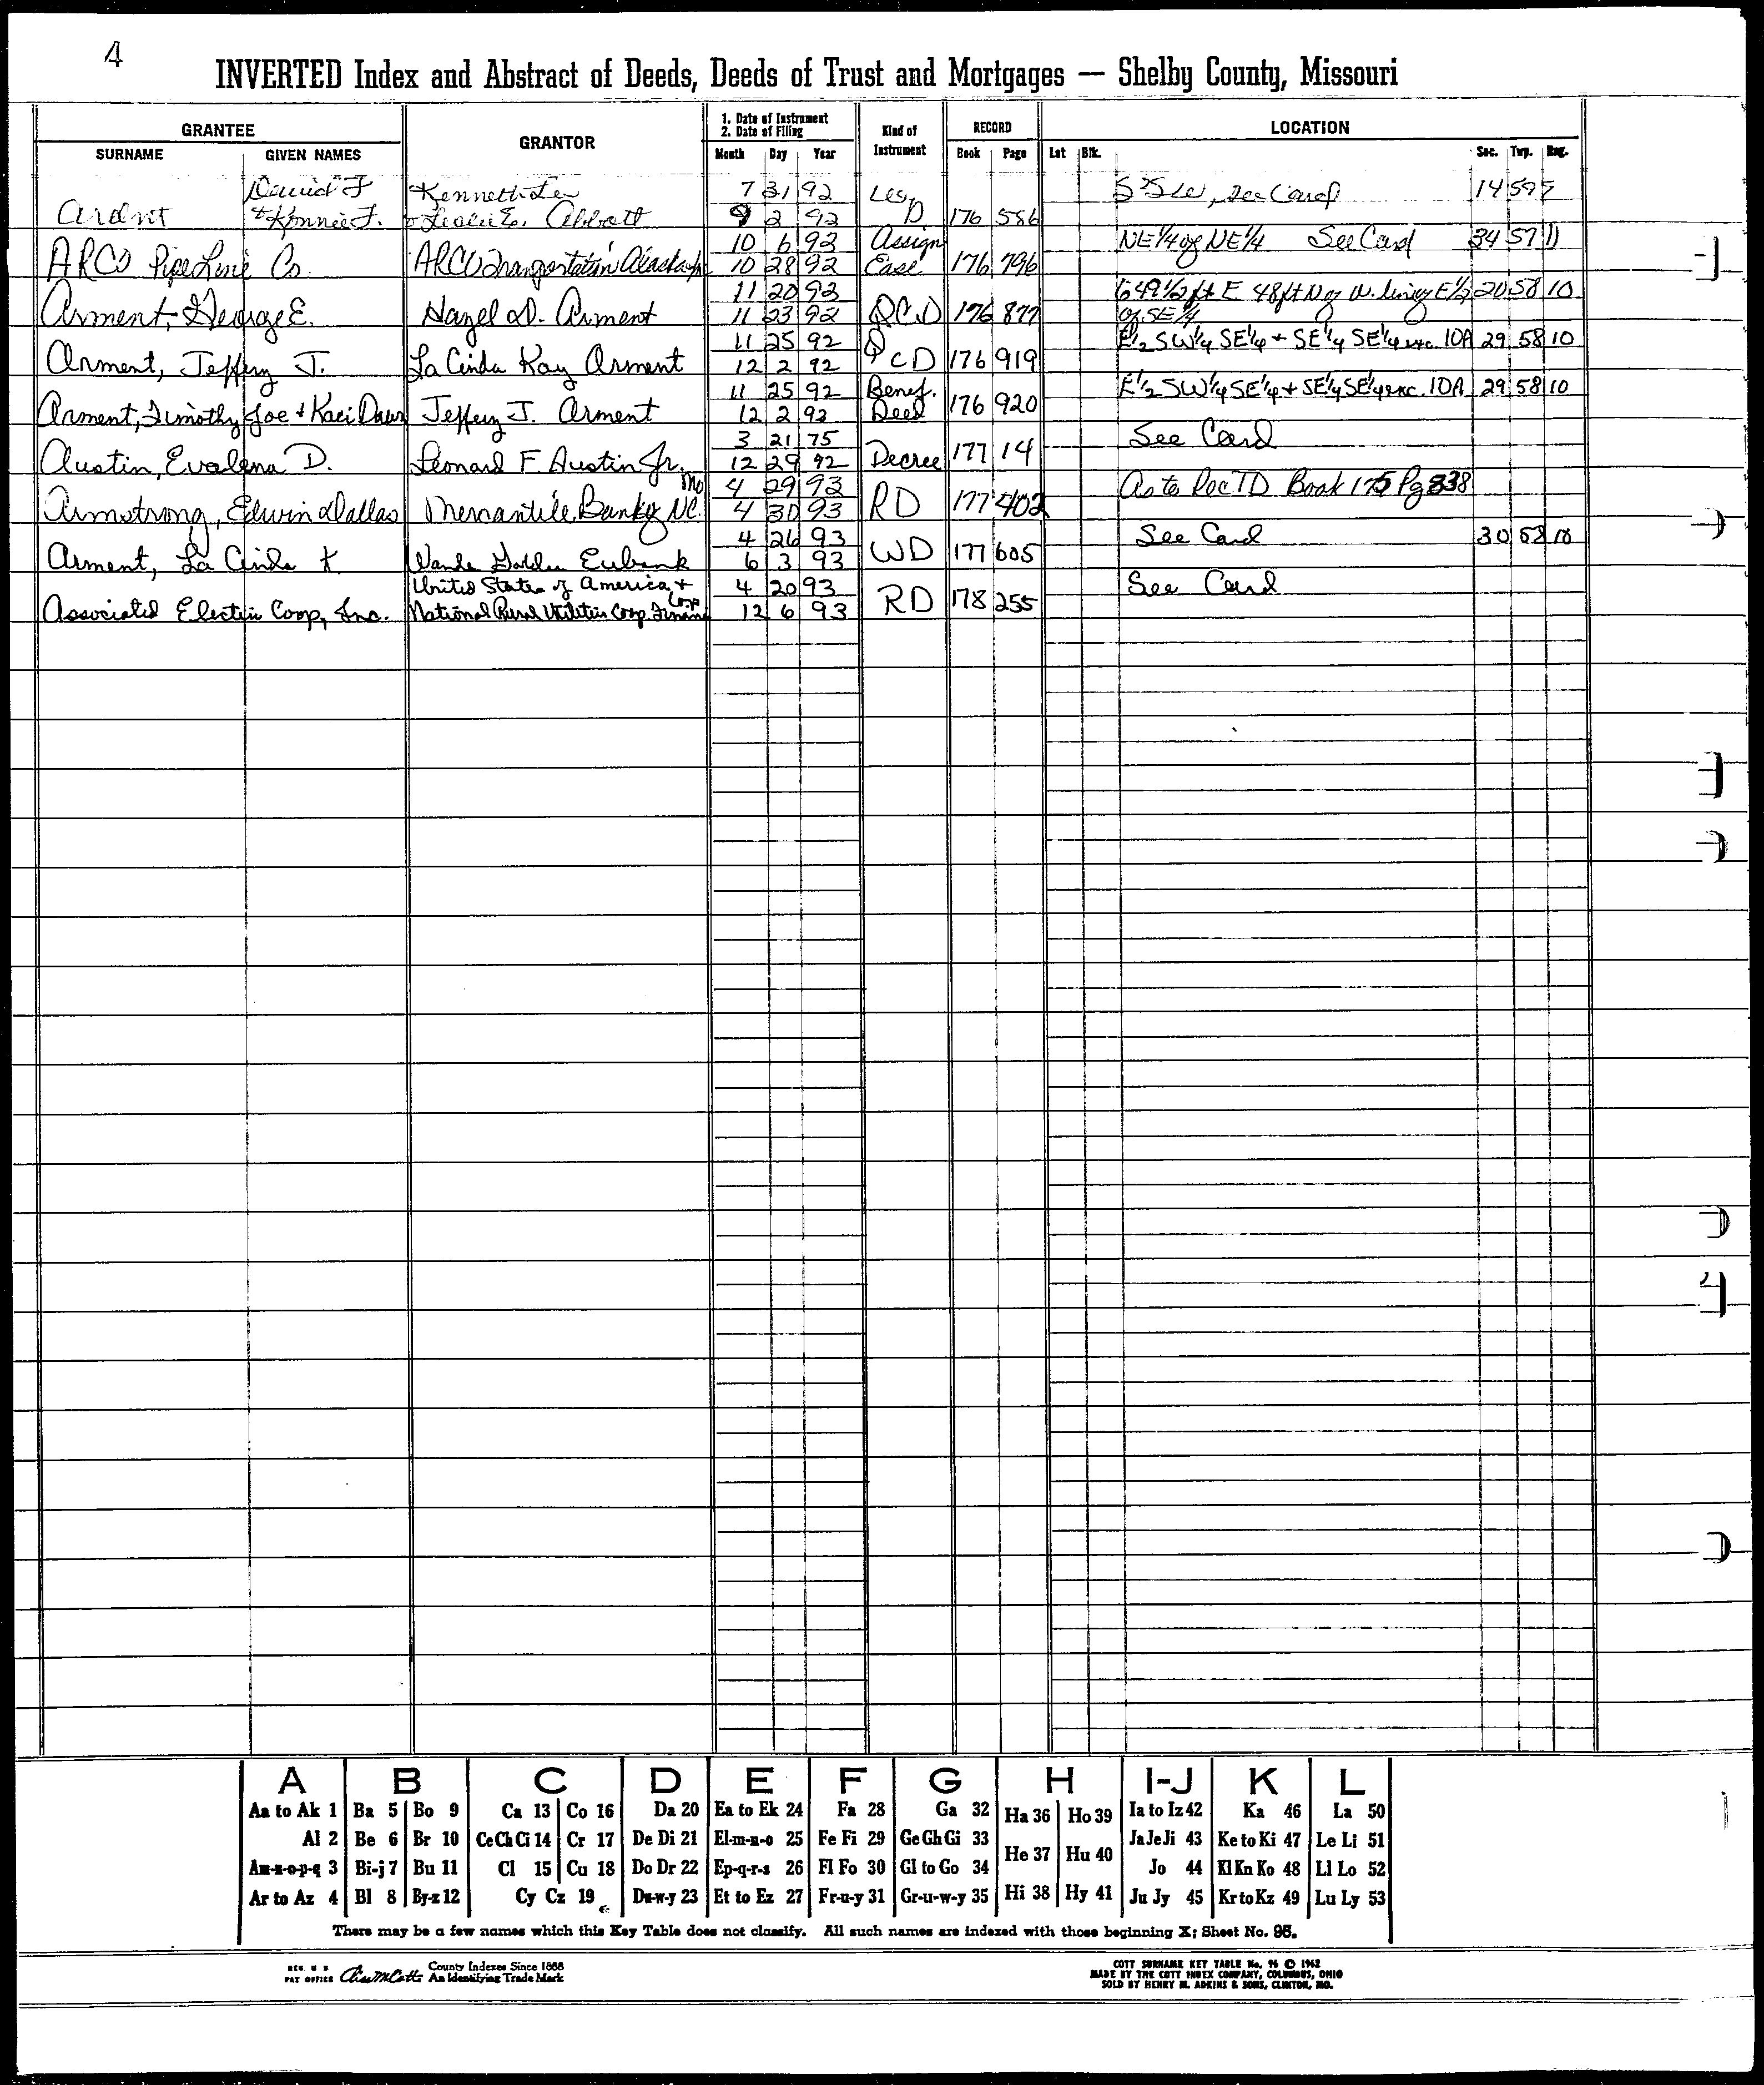 4
INVERTED Index and Abstract of Deeds, Deeds of Trust and Mortgages — Shelby County, Missouri
GRANTEE GRANTOR 1. Date of Instrument 2. Date of Filing Kind of Instrument RECORD LOCATION
SURNAME GIVEN NAMES Month Day Year Book Page Lot Blk. Sec. Twp. Rng.
David F Kenneth Le 7 31 92 See Card 14 59
Ardnt & Leslie E. Abbott 9 2 92 D 176 586
10 6 92 Assign NE 1/4 of NE 1/4 See Card 34 57 11
ARCO Pipe Line Co. ARCO Transportation Alaska 10 28 92 Ease 176 796
11 20 92 649 1/2 ft E 48 ft N of W. line of E 1/2 20 58 10
Arment, George E. Hazel D. Arment 11 23 92 QCD 176 877 of SE 1/4
11 25 92 E 1/2 SW 1/4 SE 1/4 + SE 1/4 SE 1/4 exc. 10A 29 58 10
Arment, Jeffery J. La Cinda Kay Arment 12 2 92 QCD 176 919
11 25 92 Benef. E 1/2 SW 1/4 SE 1/4 + SE 1/4 SE 1/4 exc. 10A 29 58 10
Arment, Timothy Joe + Kaci Dawn Jeffery J. Arment 12 2 92 Deed 176 920
3 21 75 See Card
Austin, Evalena D. Leonard F. Austin Jr. 12 29 92 Decree 177 14
Mo 4 29 93 As to Rec TD Book 175 Pg 838
Armstrong, Edwin Dallas Mercantile Bank of NC. 4 30 93 RD 177 402
4 26 93 See Card 30 58 10
Arment, La Cinda K Wanda Golden Eubank 6 3 93 WD 177 605
United States of America + 4 20 93 See Card
Associated Electric Coop, Inc. National Rural Utilities Coop. Finance Corp 12 6 93 RD 178 255
A B C D E F G H I-J K L
Aa to Ak 1 Ba 5 Bo 9 Ca 13 Co 16 Da 20 Ea to Ek 24 Fa 28 Ga 32 Ha 36 Ho 39 Ia to Iz 42 Ka 46 La 50
Al 2 Be 6 Br 10 Ce Ch Ci 14 Cr 17 De Di 21 El-m-n-o 25 Fe Fi 29 Ge Gh Gi 33 He 37 Hu 40 Ja Je Ji 43 Ke to Ki 47 Le Li 51
Am-n-o-p-q 3 Bi-j 7 Bu 11 Cl 15 Cu 18 Do Dr 22 Ep-q-r-s 26 Fl Fo 30 Gl to Go 34 Jo 44 Kl Kn Ko 48 Ll Lo 52
Ar to Az 4 Bl 8 By-z 12 Cy Cz 19 Du-w-y 23 Et to Ez 27 Fr-u-y 31 Gr-u-w-y 35 Hi 38 Hy 41 Ju Jy 45 Kr to Kz 49 Lu Ly 53
There may be a few names which this Key Table does not classify. All such names are indexed with those beginning X; Sheet No. 96.
REG U S PAT OFFICE County Indexes Since 1888 An Identifying Trade Mark
COTT SURNAME KEY TABLE No. 96 © 1962
MADE BY THE COTT INDEX COMPANY, COLUMBUS, OHIO
SOLD BY HENRY M. ADKINS & SONS, CLINTON, MO.